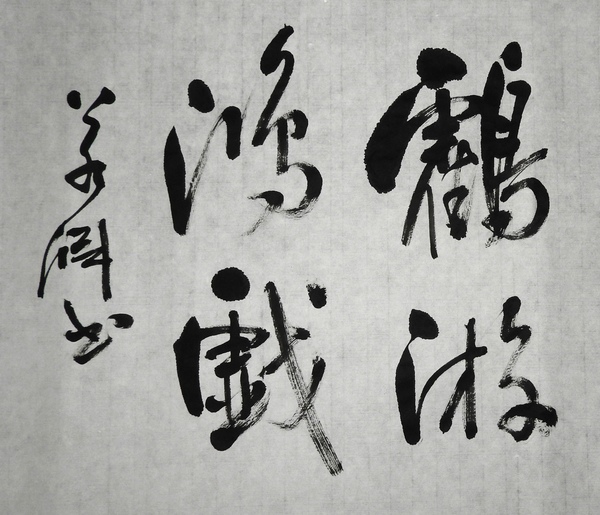 鶴游
鴻戲
书